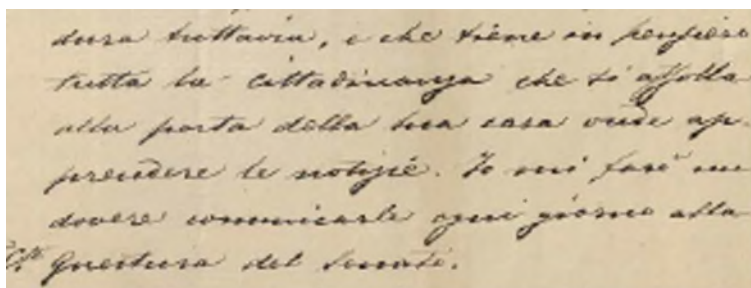 dura tuttavia, e che tiene in pensiero
tutta la cittadinanza che si affolla
alla porta della sua casa onde ap-
prendere le notizie. Io mi farò un
dovere comunicarle ogni giorno alla
Questura del Senato.